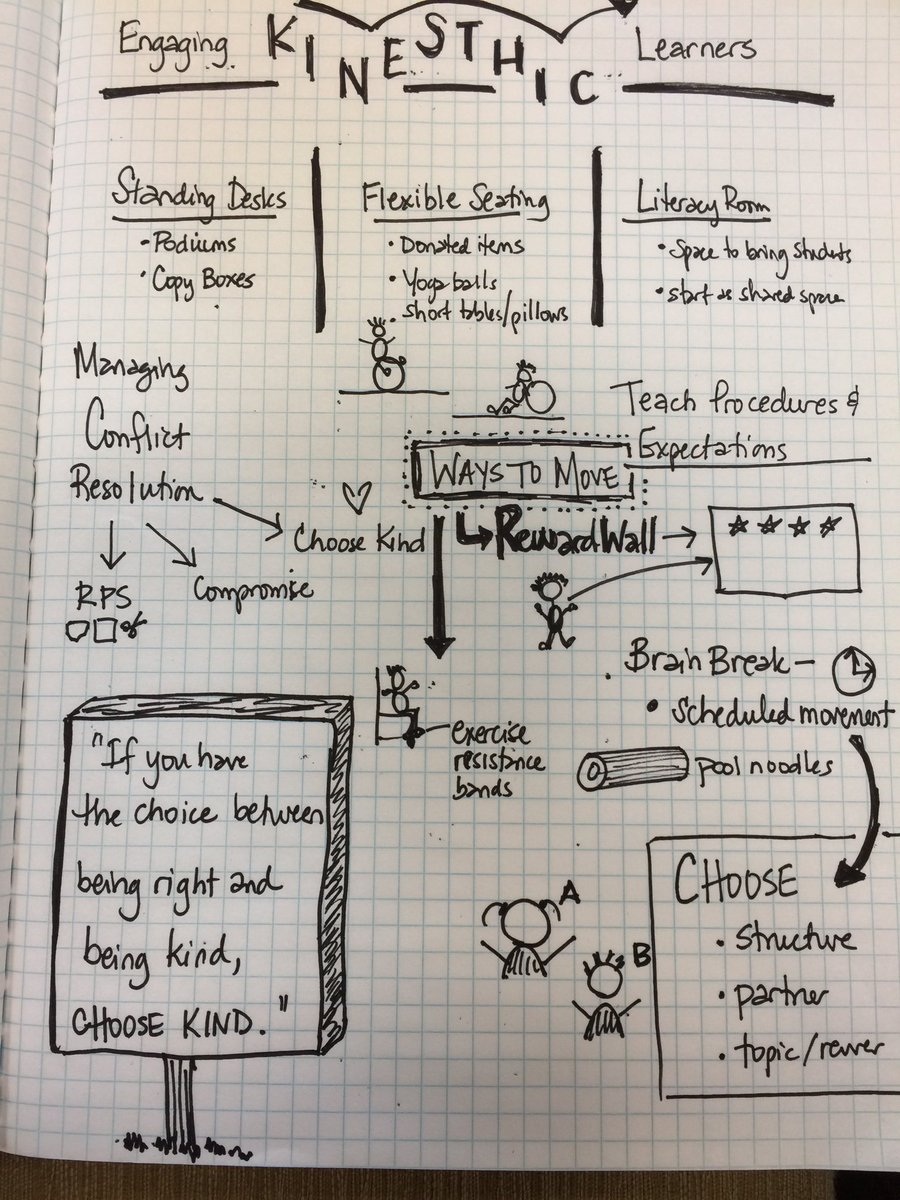 Engaging KINESTHIC Learners
Standing Desks
• Podiums
• Copy Boxes
Flexible Seating
• Donated items
• Yoga balls
• short tables/pillows
Literacy Room
• Space to bring students
• start as shared space
Managing
Conflict
Resolution
RPS
Compromise
Choose Kind
Teach Procedures &
Expectations
WAYS TO MOVE
Reward Wall
• Brain Break —
• Scheduled movement
exercise
resistance
bands
pool noodles
"If you have
the choice between
being right and
being kind,
CHOOSE KIND."
A
B
CHOOSE
• structure
• partner
• topic/